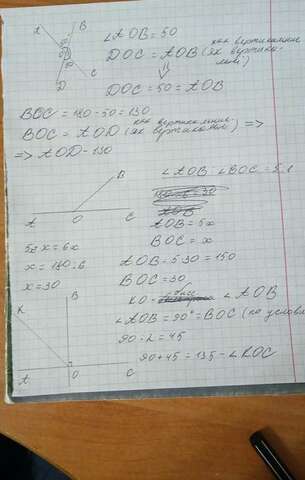 A B
O
D C
∠AOB = 50
как вертикальные
DOC = AOB (як вертикальні)
DOC = 50 = AOB
BOC = 180 - 50 = 130
как вертикальные
BOC = AOD (як вертикальні) =>
=> AOD - 130
B
A O C
∠AOB ∠BOC = 5:1
AOB = 5x
BOC = x
5x x = 6x
x = 180:6
x = 30
AOB = 5·30 = 150
BOC = 30
KO - бисс ∠AOB
∠AOB = 90° = BOC (по услов
90 : 2 = 45
90 + 45 = 135 - ∠KOC
K B
A O C